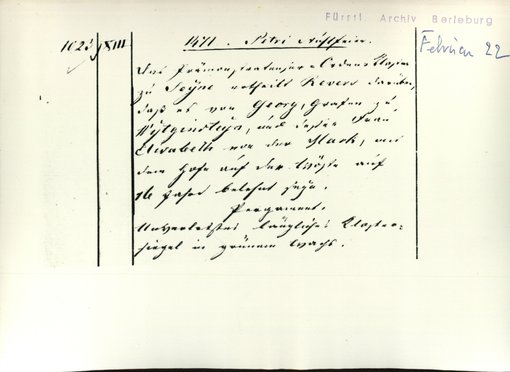 Fürstl. Archiv Berleburg
Februar 22
102 XIII
1471. Petri Stuhlfeier.
Das Prämonstratenser-Ordens Kloster
zu Seyne ertheilt Revers darüber,
daß es von Georg, Grafen zu
Wytgensteyn, und dessen Frau
Elisabeth von der Mark, mit
dem Hofe auf der Wöste auf
16 Jahre belehnt seye.
Pergament.
Unverletztes längliches Kloster-
siegel in grünem Wachs.